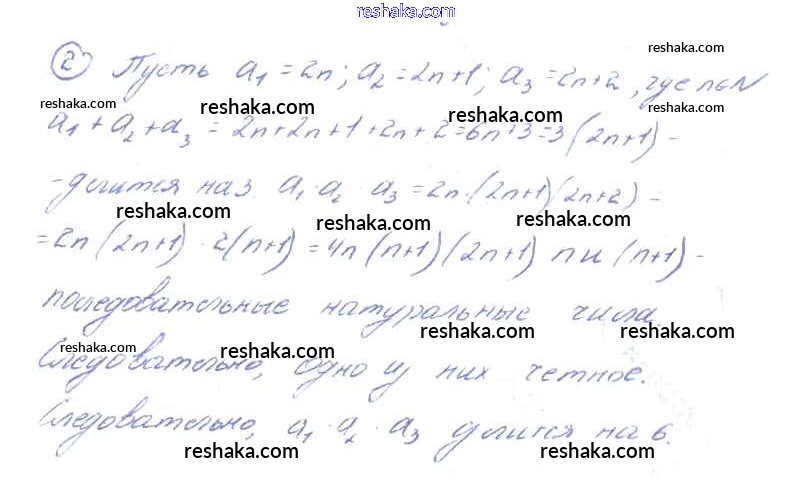 reshaka.com
② Пусть a₁ = 2n; a₂ = 2n+1; a₃ = 2n+2, где n∈N
reshaka.com
reshaka.com reshaka.com reshaka.com
a₁ + a₂ + a₃ = 2n+2n+1+2n+2=6n+3=3(2n+1) -
reshaka.com reshaka.com
- делится на 3. a₁ · a₂ · a₃ = 2n·(2n+1)(2n+2) =
reshaka.com reshaka.com reshaka.com
= 2n(2n+1) · 2(n+1) = 4n(n+1)(2n+1) n и (n+1) -
последовательные натуральные числа.
reshaka.com reshaka.com
reshaka.com reshaka.com
Следовательно, одно из них четное.
Следовательно, a₁ · a₂ · a₃ делится на 6.
reshaka.com reshaka.com reshaka.com